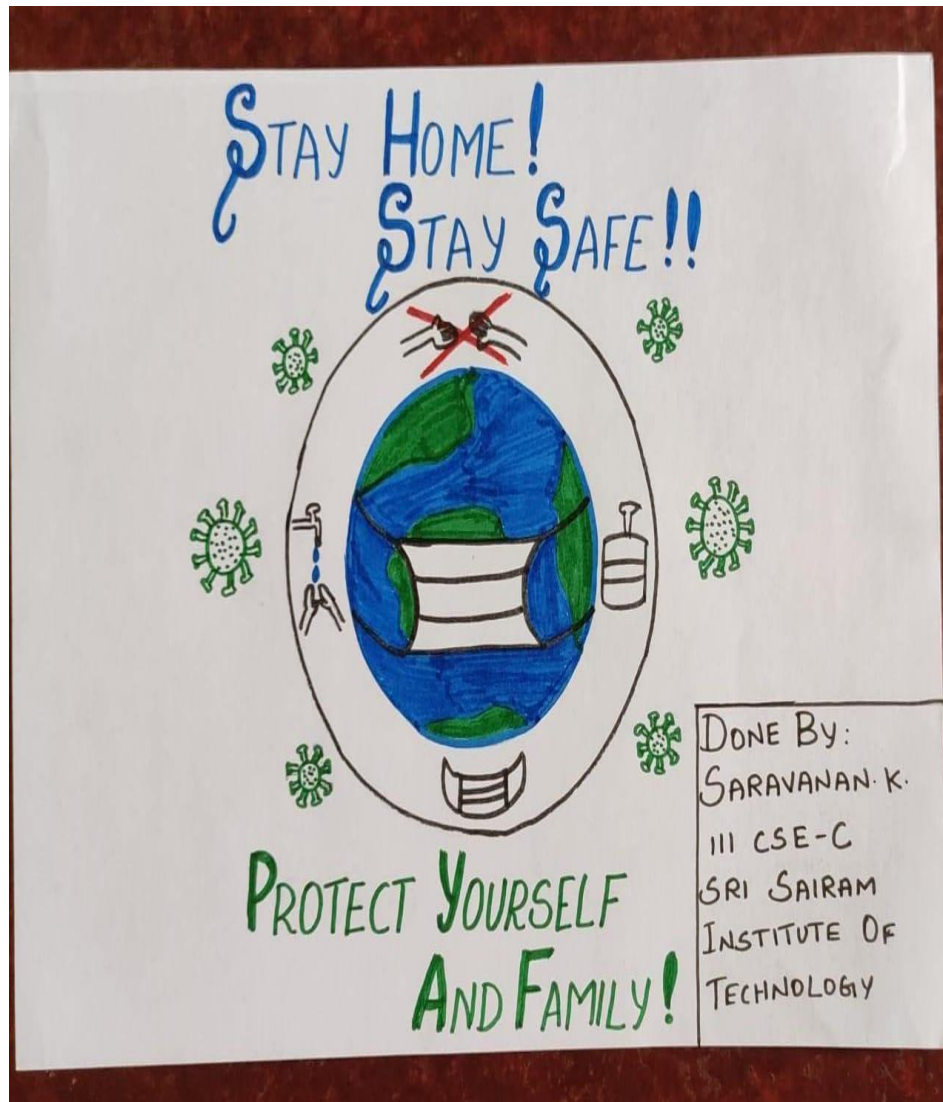 STAY HOME!
STAY SAFE!!
PROTECT YOURSELF
AND FAMILY!
DONE BY:
SARAVANAN.K.
III CSE-C
SRI SAIRAM
INSTITUTE OF
TECHNOLOGY